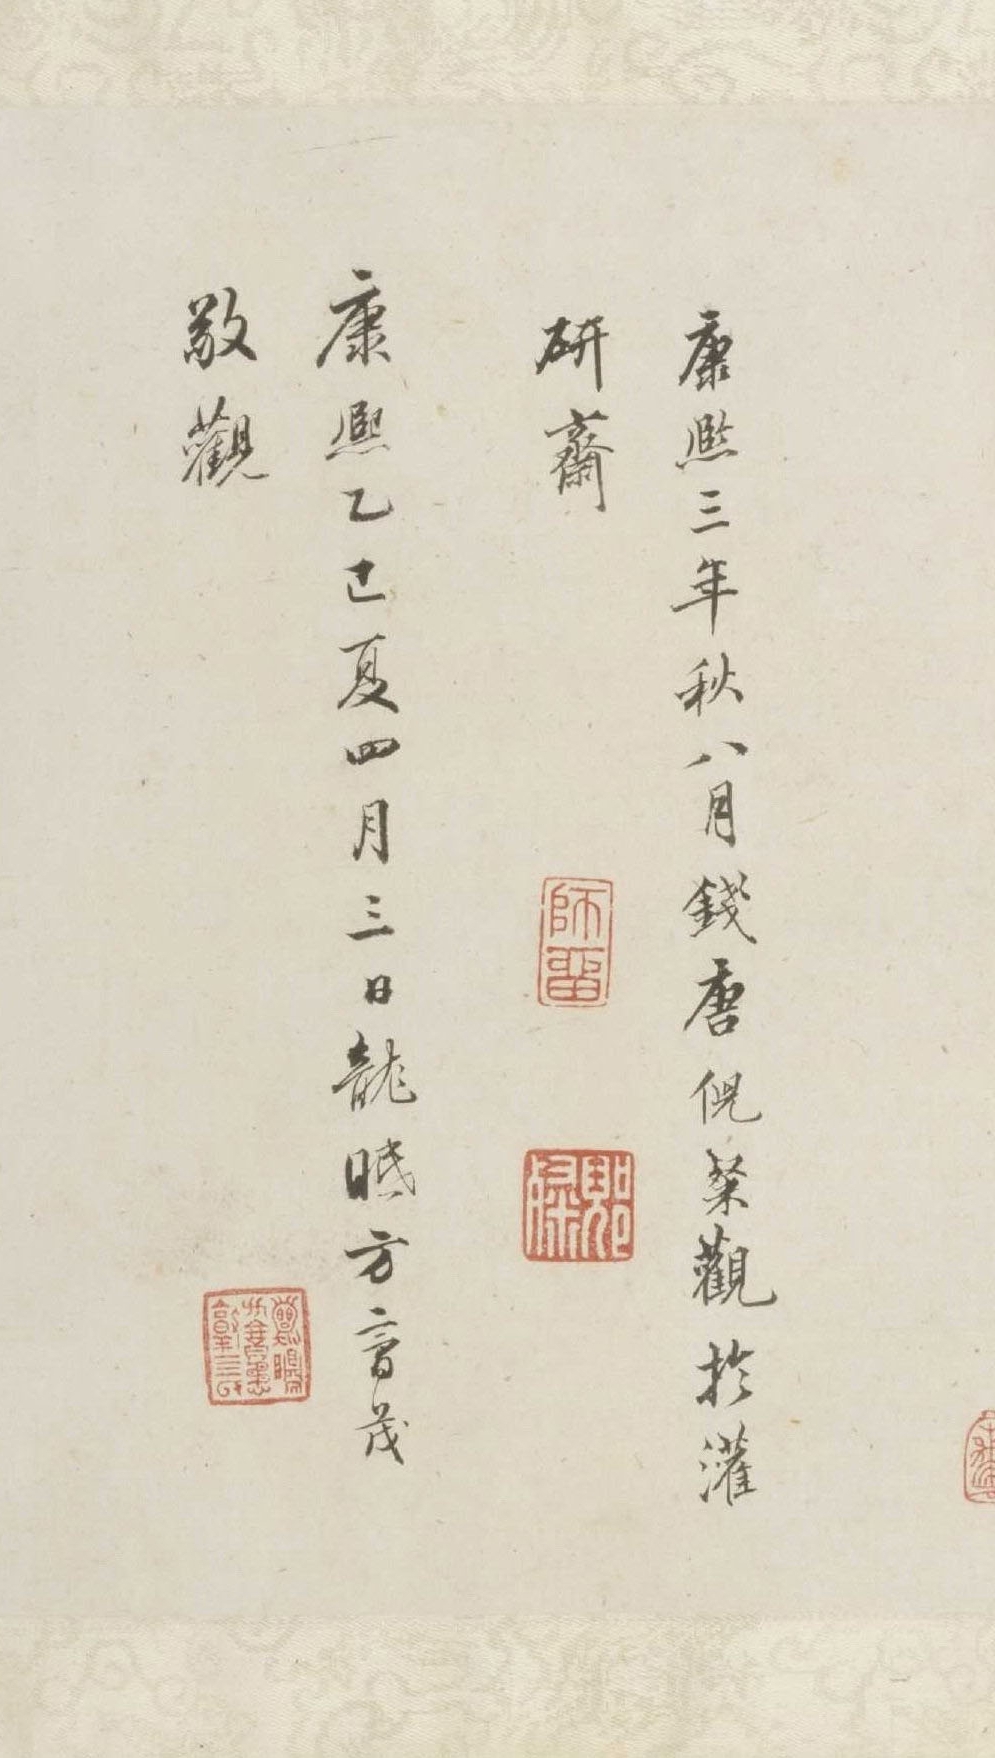 康熙三年秋八月錢唐倪粲觀於灌
研齋
師留
倪粲
康熙乙巳夏四月三日龍眠方亨茂
敬觀